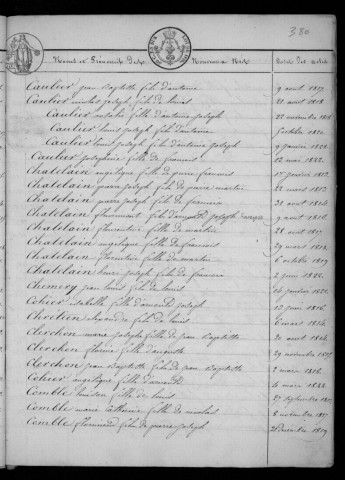 380
Noms et Prénoms des Nouveaux Nés Date des actes
Caulier jean Baptiste fils d'antoine 9 août 1817
Caulier nicolas joseph fils de louis 20 août 1818
Caulier natalie fille d'antoine joseph 22 novembre 1816
Caulier louis joseph fils d'antoine 5 octobre
Caulier louis joseph fils d'antoine joseph 9 janvier 1822
Caulier josephine fille de francois 12 mai 1822
Chatelain angelique fille de pierre francois 15 janvier 1812
Chatelain pierre joseph fils de pierre martin 22 août 1813
Chatelain pierre joseph fils de francois 21 août 1814
Chatelain florimont fils d'amand joseph 9 août 1816
Chatelain florentine fille de martin 28 août 1817
Chatelain angelique fille de francois 29 mars 1818
Chatelain florentine fille de francois 6 octobre 1819
Chatelain henri joseph fils de francois 2 juin 1822
Chemery jean louis fils de louis janvier
Cohier isabelle fille d'amand joseph 12 juin 1816
Chretien fils de louis 6 mars 1814
Clerchon marie josephe fille de jean Baptiste 20 août 1814
Clerchon florine fille d'augustin 29 novembre
Clerchon jean Baptiste fils de jean Baptiste 2 mai 1816
Cohier angelique fille d'amand 4 mars 1822
Comble louison fille de louis 27 septembre
Comble marie catherine fille de nicolas 8 novembre
Comble florimond fils de pierre joseph 21 décembre 1819